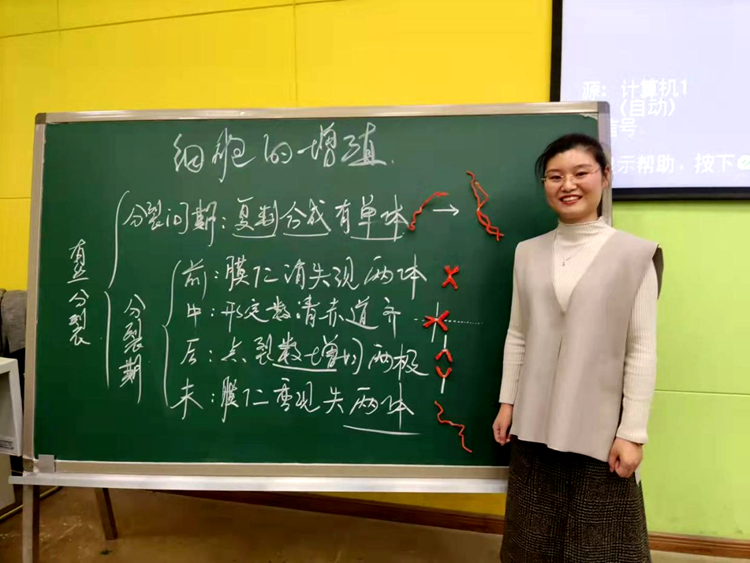 细胞的增殖
有丝分裂
分裂间期：复制合成有单体 →
分裂期
前：膜仁消失现两体
中：形定数清赤道齐
后：点裂数增均两极
末：膜仁重现失两体
源：计算机1
（自动）
信号
示帮助，按下